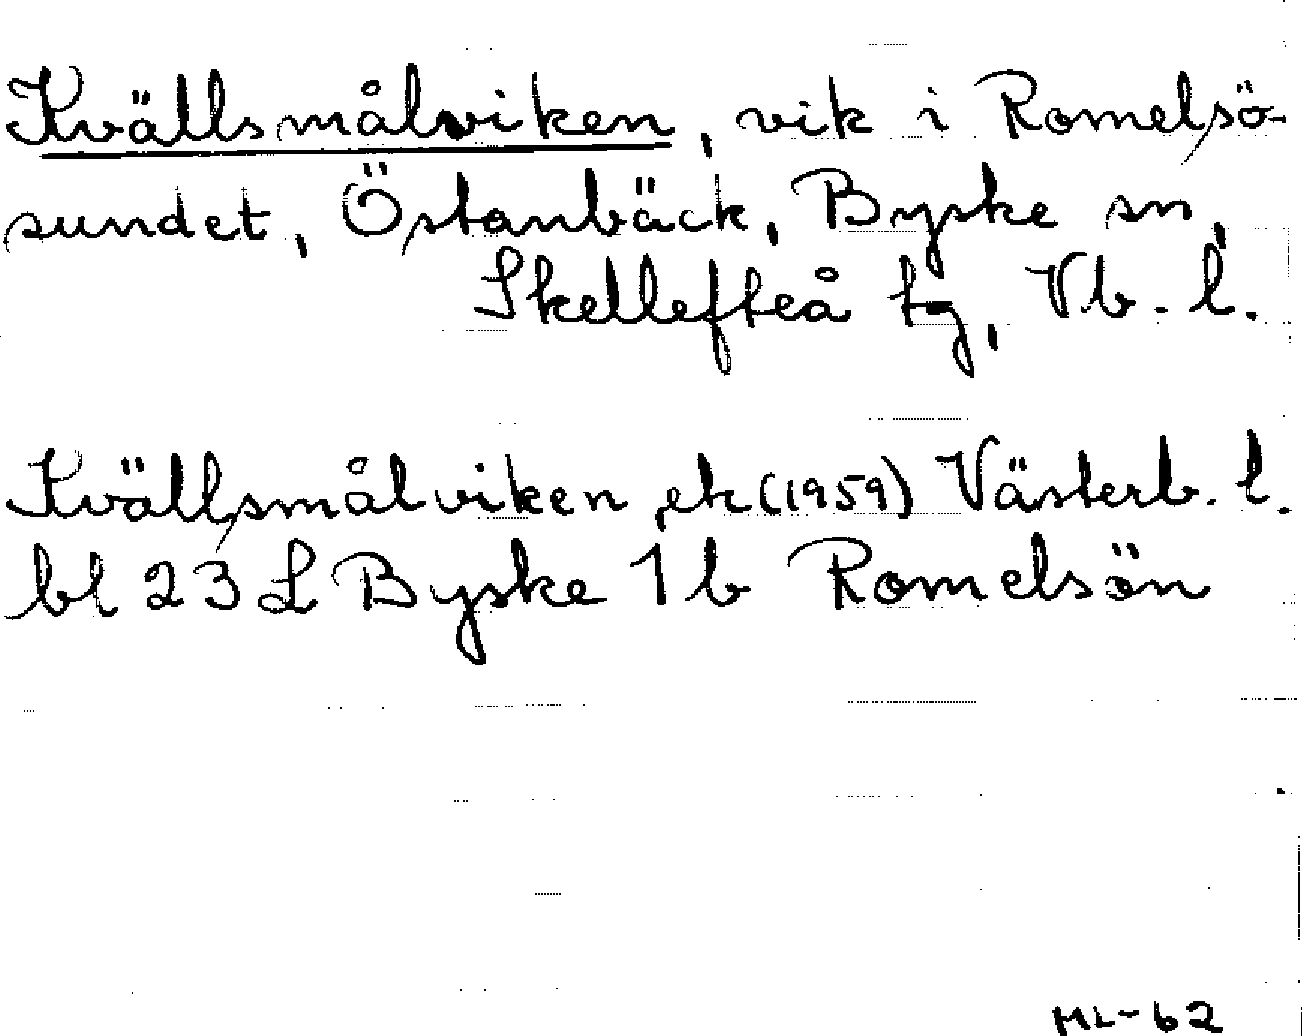 Kvällsmålviken, vik i Romelsö-
sundet, Östanbäck, Byske sn,
Skellefteå tg, Vb. l.
Kvällsmålviken ek (1959) Västerb. l.
bl 23 L Byske 1 b Romelsön
ML-62